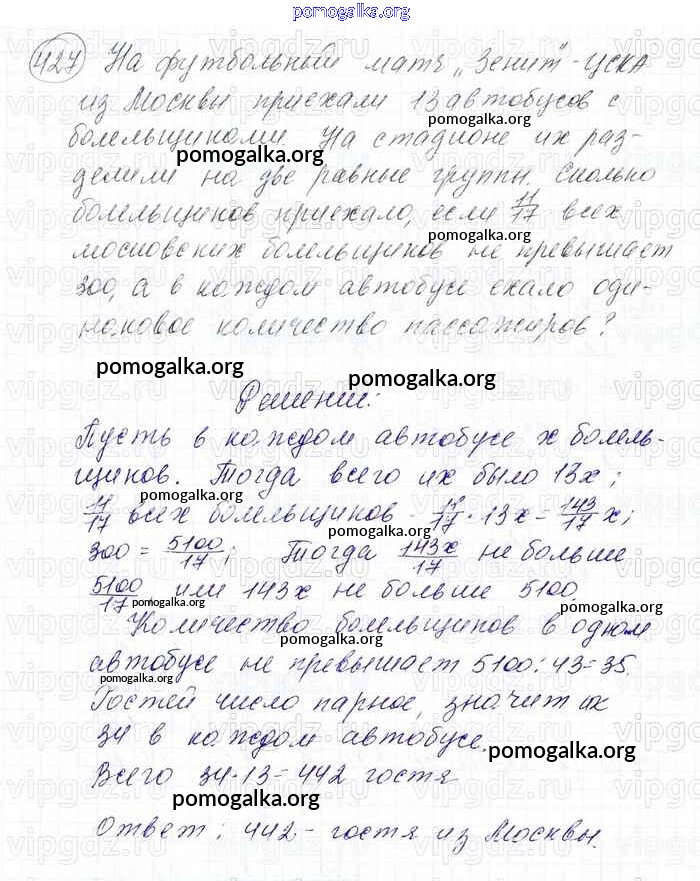 pomogalka.org
427 На футбольный матч „Зенит" - ЦСКА
из Москвы приехали 13 автобусов с
болельщиками. На стадионе их раз-
pomogalka.org pomogalka.org
делили на две равные группы. Сколько
болельщиков приехало, если 11/17 всех
pomogalka.org
московских болельщиков не превышает
300, а в каждом автобусе ехало оди-
наковое количество пассажиров?
pomogalka.org
pomogalka.org
Решение:
Пусть в каждом автобусе x болель-
щиков. Тогда всего их было 13x;
pomogalka.org
11/17 всех болельщиков - 11/17 · 13x = 143/17 x;
pomogalka.org
300 = 5100/17; Тогда 143x/17 не больше
5100/17 или 143x не больше 5100.
pomogalka.org pomogalka.org
Количество болельщиков в одном
pomogalka.org
автобусе не превышает 5100:43=35.
pomogalka.org
Гостей число парное, значит их
34 в каждом автобусе.
pomogalka.org
Всего 34·13=442 гостя
pomogalka.org
Ответ: 442 - гостя из Москвы.